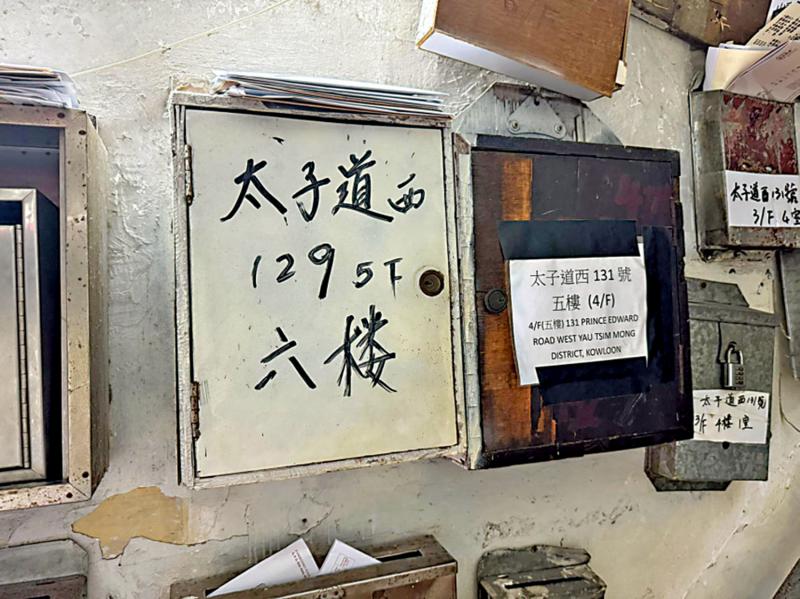 太子道西
129 5T
六楼
太子道西 131 號
五樓 (4/F)
4/F(五樓) 131 PRINCE EDWARD
ROAD WEST YAU TSIM MONG
DISTRICT, KOWLOON
太子道西131號
3/F 4室
太子道西131號
3/F 4楼1室